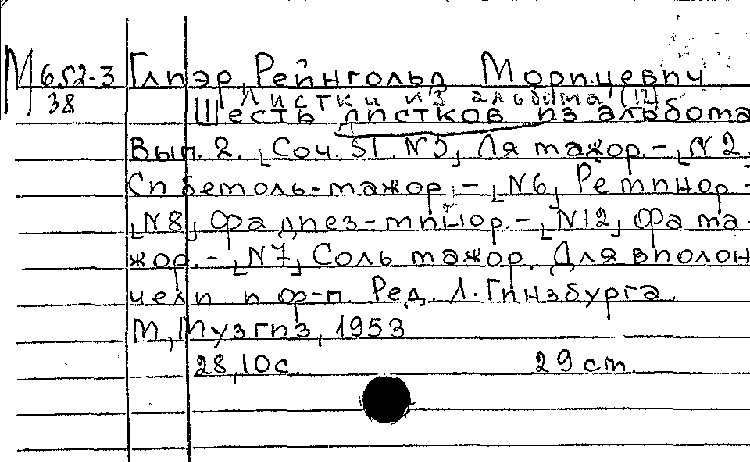 М 652-3 Глиэр, Рейнгольд Морицевич
38 Листки из альбома (12)
Шесть листков из альбома
Вып. 2. [Соч. 51. N3] Ля мажор. - [N2]
Си бемоль-мажор. - [N6] Ре минор -
[N8] Фа диез-минор. - [N12] Фа ма-
жор. - [N7] Соль мажор. Для виолон
чели и ф-п. Ред. Л. Гинзбурга
М, Музгиз, 1953
28, 10с 29 cm